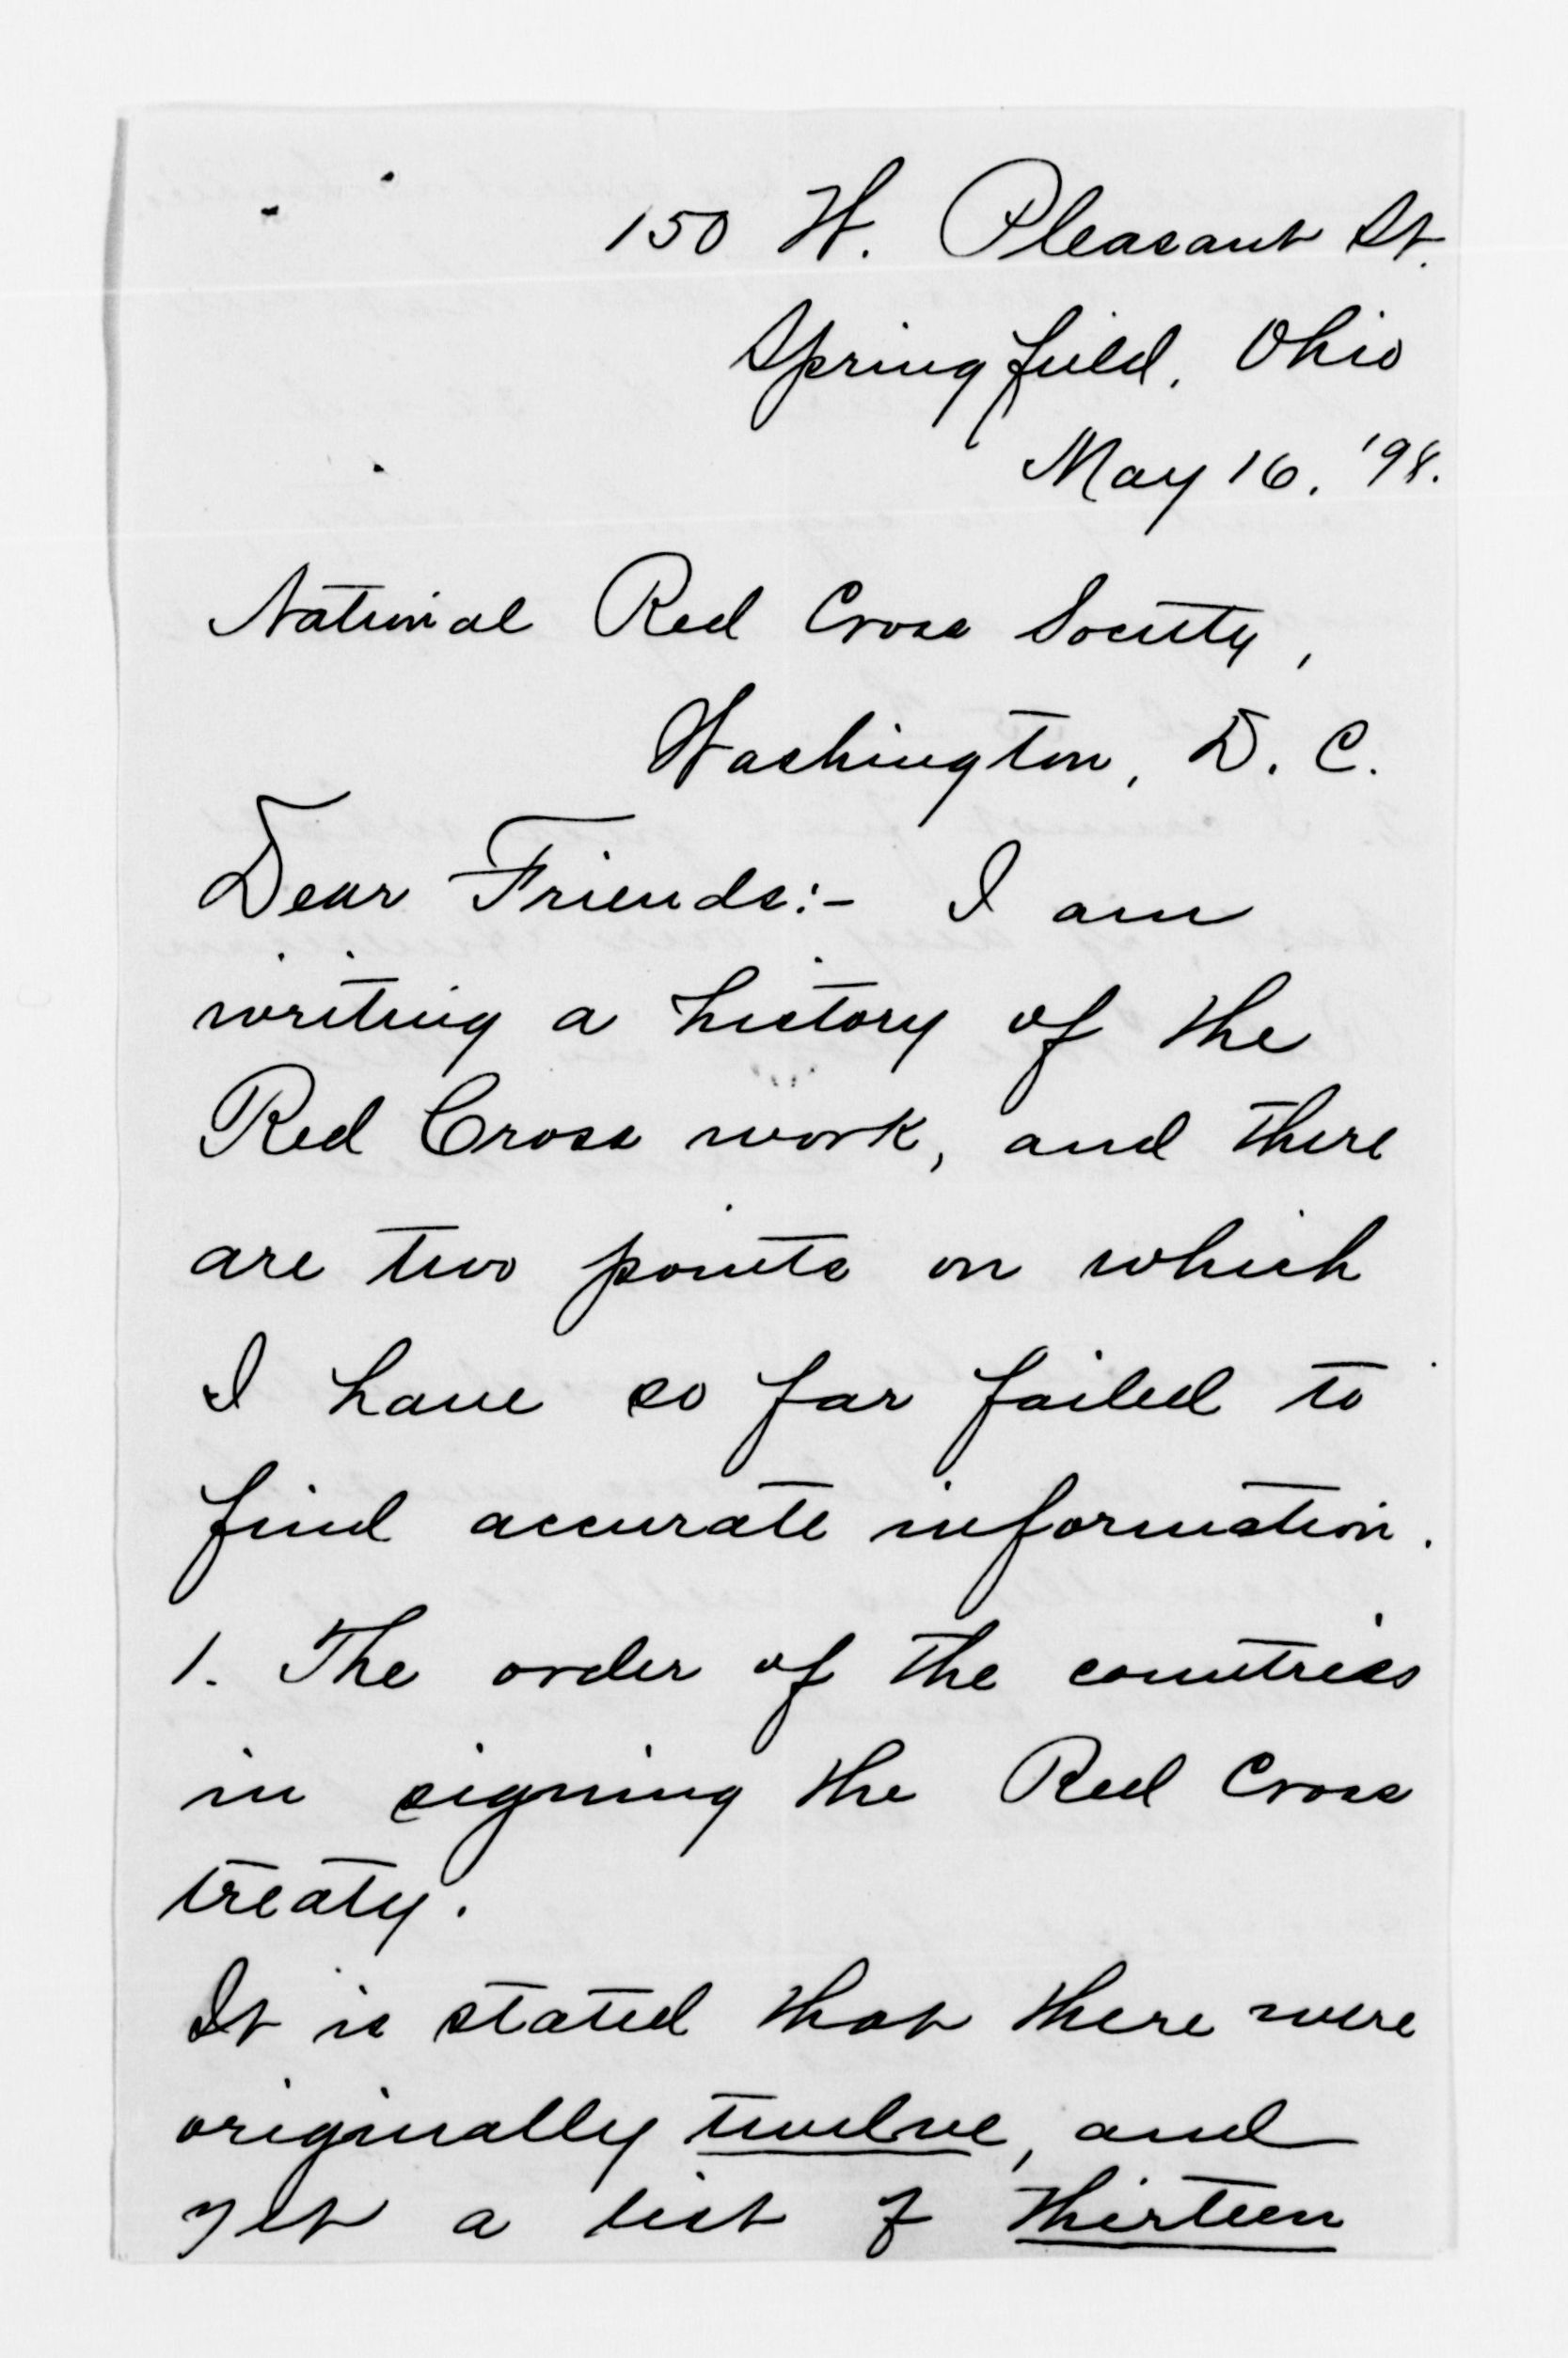 150 W. Pleasant St.
Springfield, Ohio
May 16, '98.
National Red Cross Society,
Washington, D. C.
Dear Friends:- I am
writing a history of the
Red Cross work, and there
are two points on which
I have so far failed to
find accurate information.
1. The order of the countries
in signing the Red Cross
treaty.
It is stated that there were
originally twelve, and
yet a list of thirteen